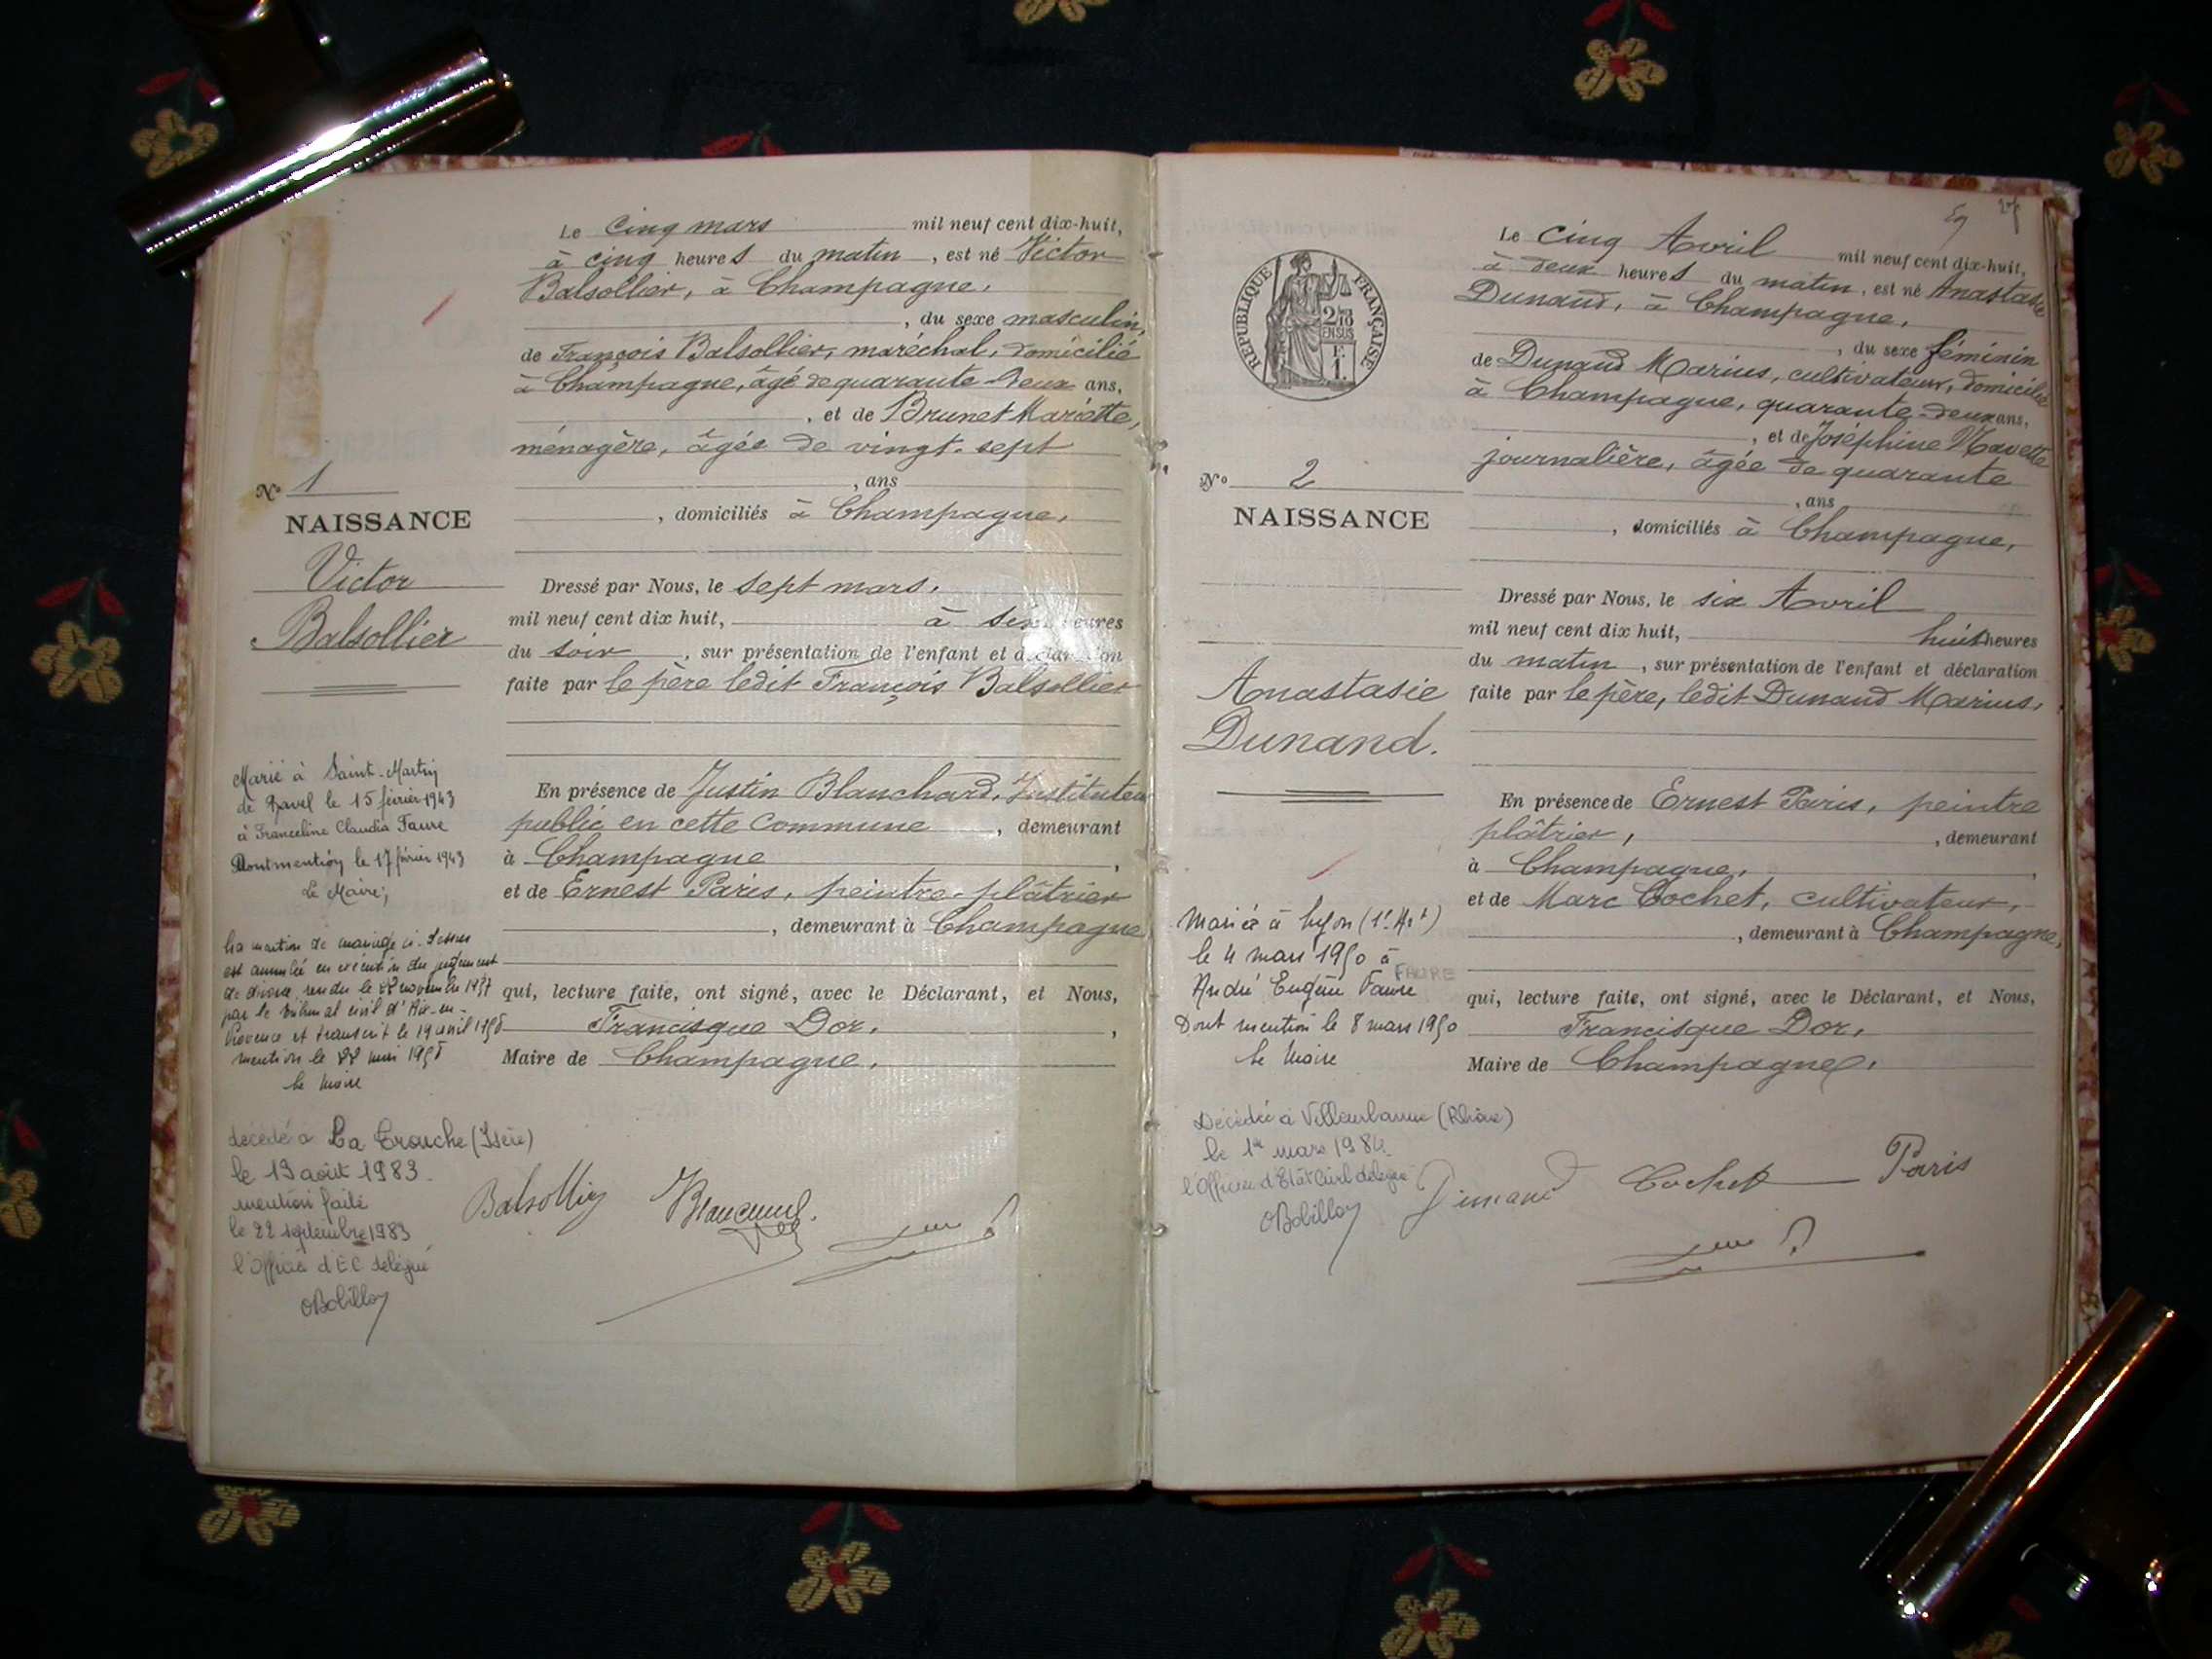 Le cinq mars mil neuf cent dix-huit,
à cinq heures du matin, est né Victor
Balsollier, à Champagne,
, du sexe masculin,
de François Balsollier, maréchal, domicilié
à Champagne, âgé de quarante-deux ans,
, et de Brunet Mariette,
ménagère, âgée de vingt-sept
, ans
, domiciliés à Champagne,
Dressé par Nous, le sept mars,
mil neuf cent dix huit, à six heures
du soir, sur présentation de l'enfant et déclaration
faite par le père ledit François Balsollier
En présence de Justin Blanchard, Instituteur
public en cette Commune, demeurant
à Champagne,
et de Ernest Paris, peintre-plâtrier
, demeurant à Champagne
qui, lecture faite, ont signé, avec le Déclarant, et Nous,
Francisque Dor,
Maire de Champagne,
Balsollier
N° 1
NAISSANCE
Victor
Balsollier
Marié à Saint-Martin
de le 15 février 1943
à Franceline Claudia Faure
Dont mention le 17 février 1943
Le Maire,
La mention de mariage ci-dessus
est annulée en exécution du jugement
de divorce rendu le novembre
par le tribunal civil d'Aix-en-
Provence et transcrit le 19 avril
mention le mai
le Maire
décédé à La Tronche (Isère)
le 19 août 1983.
mention faite
le 22 septembre 1983
l'officier d'EC délégué
Le cinq Avril mil neuf cent dix-huit,
à deux heures du matin, est né Anastasie
Dunand, à Champagne,
, du sexe féminin
de Dunand Marius, cultivateur, domicilié
à Champagne, quarante-deux ans,
, et de Joséphine
journalière, âgée de quarante
, ans
, domiciliés à Champagne,
Dressé par Nous, le six Avril
mil neuf cent dix huit, huit heures
du matin, sur présentation de l'enfant et déclaration
faite par le père, ledit Dunand Marius,
En présence de Ernest Paris, peintre
plâtrier, demeurant
à Champagne,
et de Marc Cochet, cultivateur,
, demeurant à Champagne,
qui, lecture faite, ont signé, avec le Déclarant, et Nous,
Francisque Dor,
Maire de Champagne,
Dunand Cochet Paris
RÉPUBLIQUE FRANÇAISE
N° 2
NAISSANCE
Anastasie
Dunand.
Mariée à Lyon (1er Art)
le 4 mars 1950 à
André Eugène Faure FAURE
Dont mention le 8 mars 1950
le Maire
Décédée à Villeurbanne (Rhône)
le 1er mars 1984.
l'Officier d'Etat Civil délégué